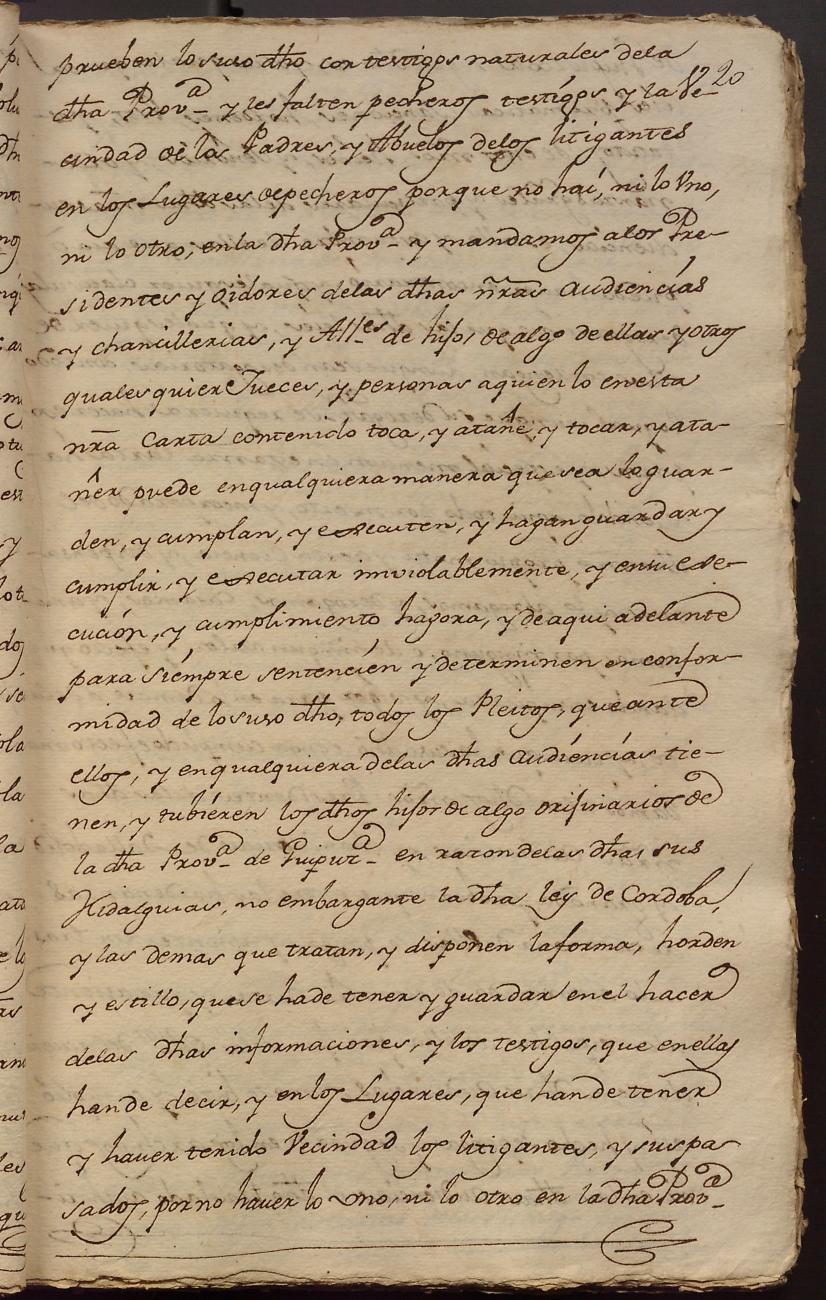 prueben lo suso dho con testigos naturales dela
20
dha Prov.ª y les falten pecheros testigos y la Ve-
cindad de los Padres, y Abuelos delos litigantes
en los Lugares depecheros porque no haí, ni lo Vno,
ni lo otro, enla dha Prov.ª y mandamos alos Pre-
sidentes y oidores delas dhas nras Audiencías
y chancillerias, y All.es de hijos de algo de ellas y otros
quales quier Jueces, y personas aquien lo enesta
nra Carta contenido toca, y atañe, y tocar, y ata-
ñer puede enqualquiera manera que sea lo guar-
den, y cumplan, y executen, y hagan guardar y
cumplir, y executar inviolablemente, y ensu exe-
cución, y cumplimiento hagora, y deaqui adelante
para siémpre sentencién y determinen en confor-
midad de lo suso dho, todos los Pleitos, que ante
ellos, y enqualquiera delas dhas Audiéncías tie-
nen, y tubiéren los dhos hijos de algo orijinarios de
la dha Prov.ª de Guipuz.ª en razon delas dhas sus
Hidalguias, no embargante la dha ley de Cordoba,
y las demas que tratan, y disponen la forma, horden
y estillo, que se ha de tener y guardar en el hacer
delas dhas informaciones, y los testigos, que en ellas
han de decir, y en los Lugares, que han de tener
y haver tenido Vecindad los litigantes, y sus pa-
sados, por no haver lo uno, ni lo otro en la dha Prov.ª